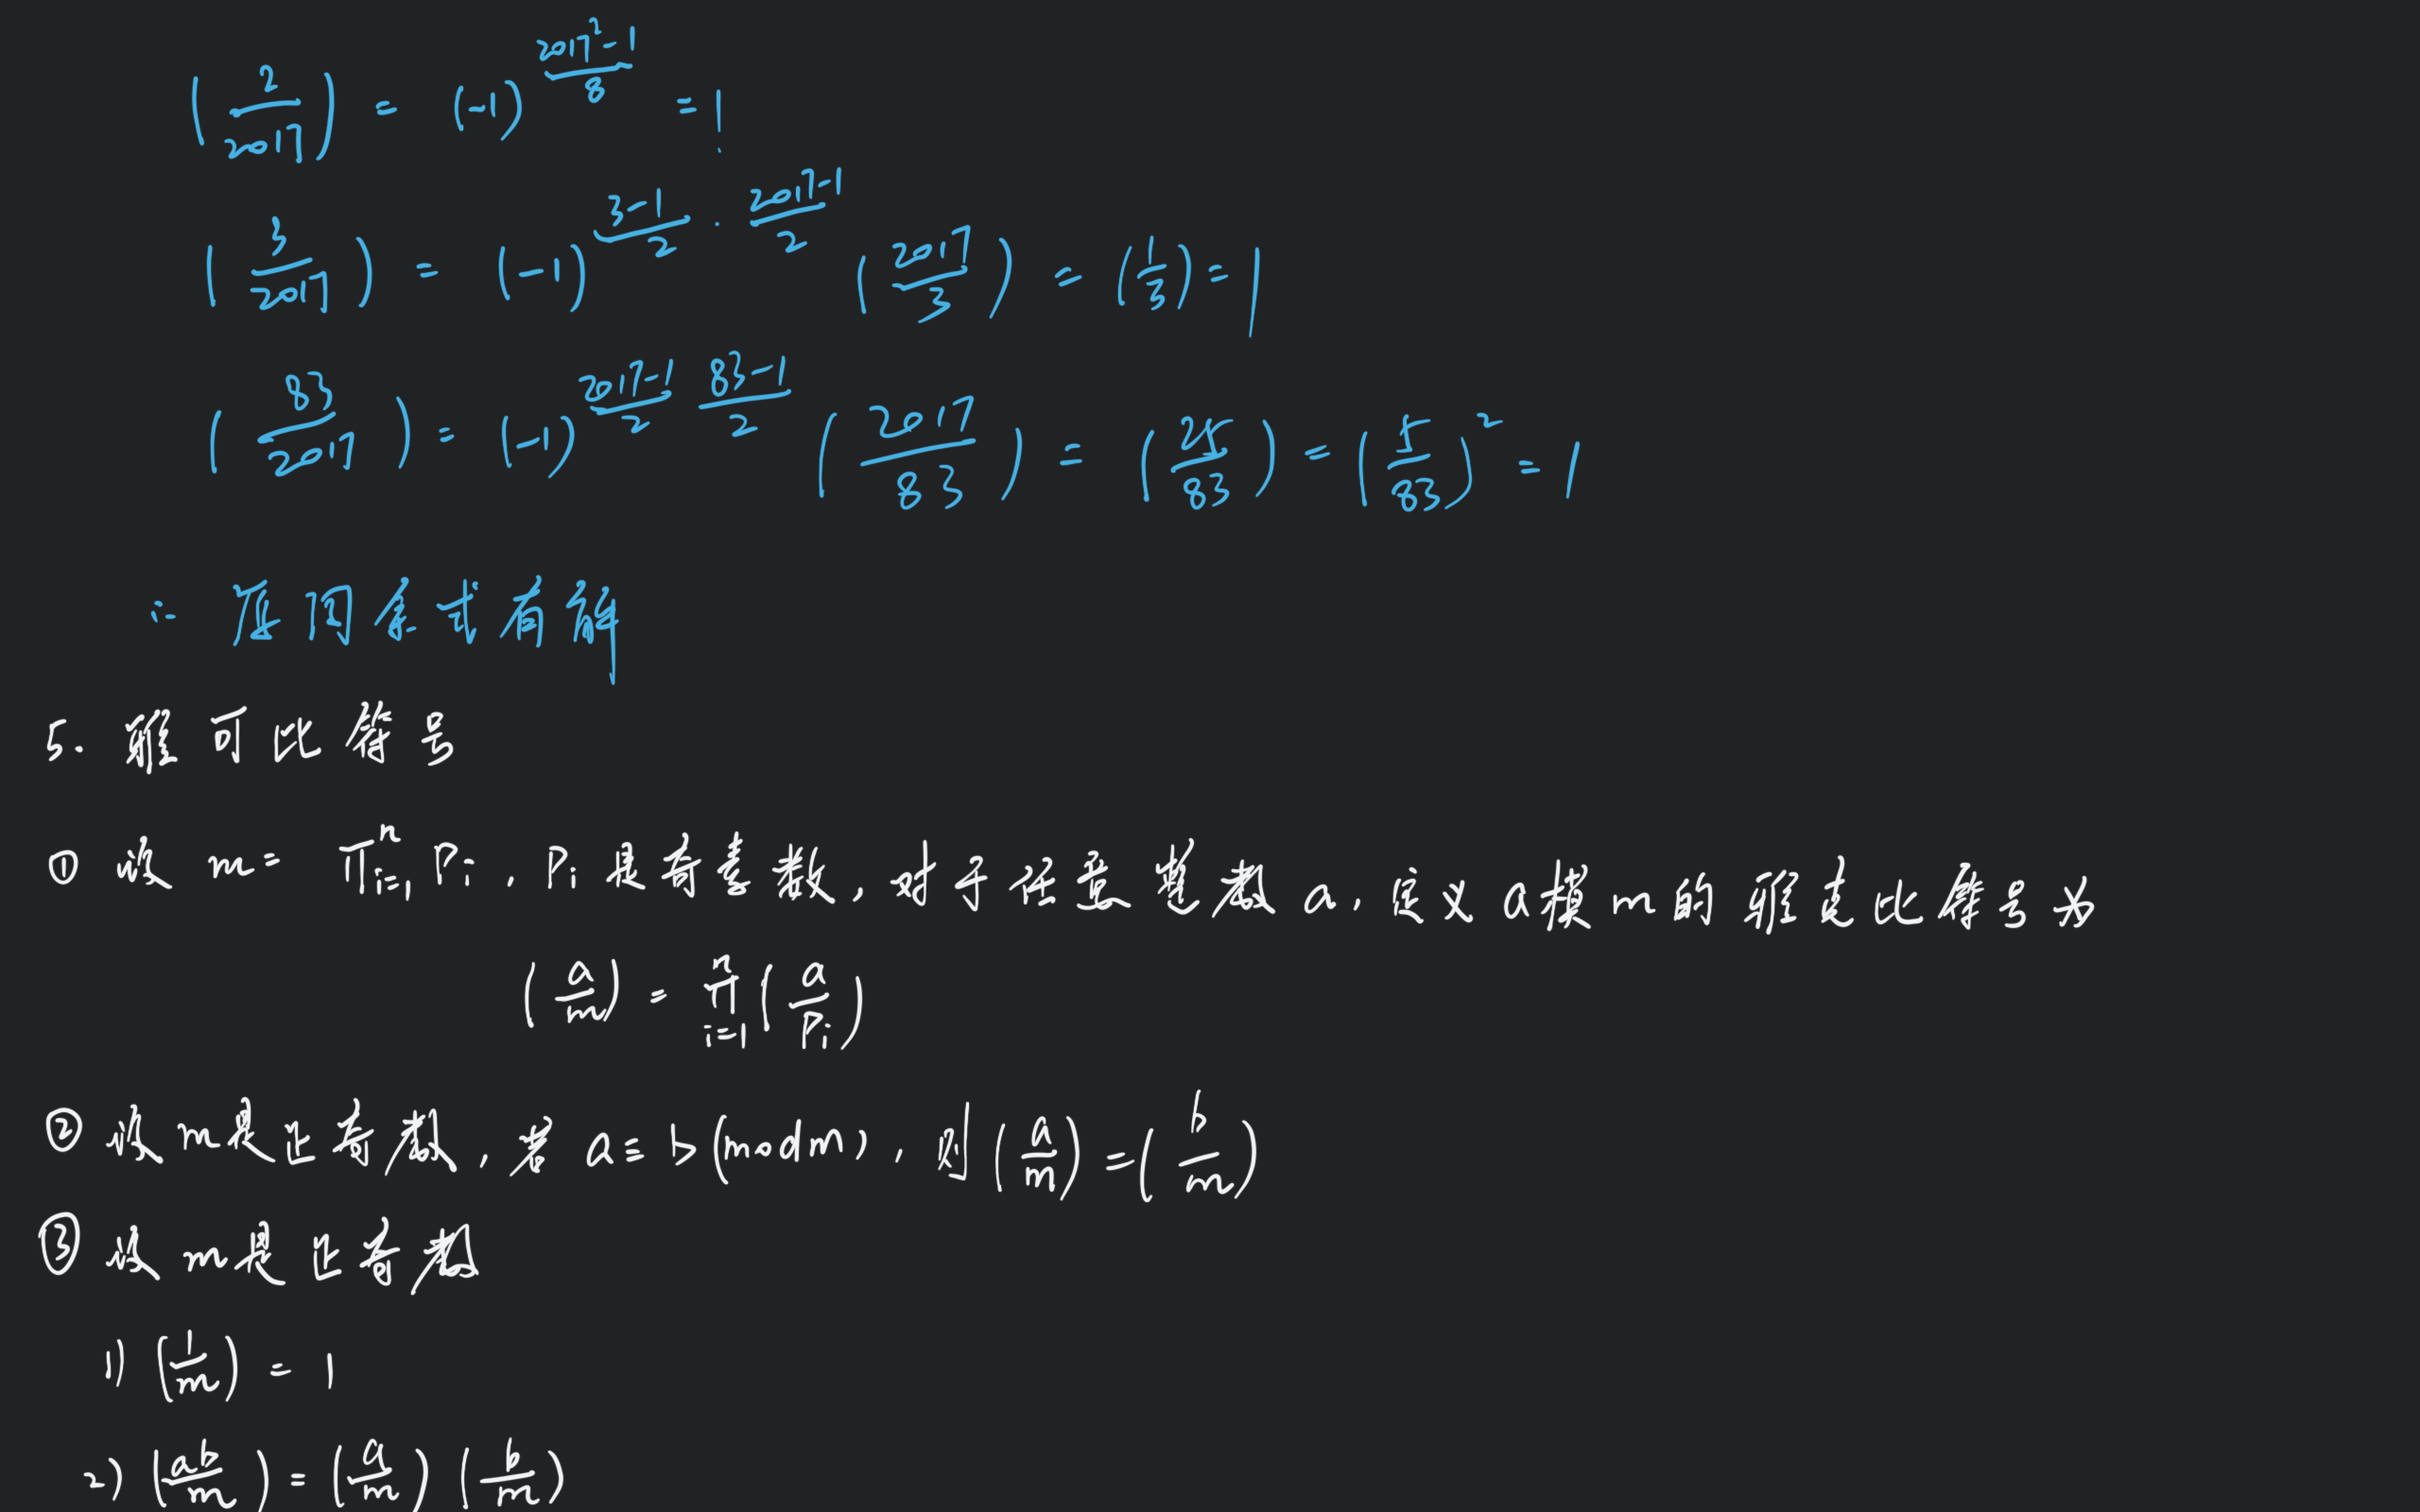 (2/2017) = (-1)^((2017²-1)/8) = 1
(3/2017) = (-1)^((3-1)/2 · (2017-1)/2) (2017/3) = (1/3) = 1
(83/2017) = (-1)^((2017-1)/2 (83-1)/2) (2017/83) = (25/83) = (5/83)² = 1
∴ 原同余式有解
5. 雅可比符号
① 设 m = ∏ⁿᵢ₌₁ Pᵢ, Pᵢ 是奇素数, 对于任意整数 a, 定义 a模m的 雅克比符号为
(a/m) = ∏ⁿᵢ₌₁ (a/Pᵢ)
② 设m是正奇数, 若 a ≡ b (mod m), 则 (a/m) = (b/m)
③ 设 m是正奇数
1) (1/m) = 1
2) (ab/m) = (a/m) (b/m)